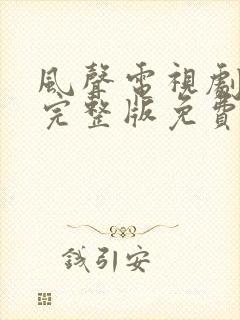 風聲電視劇
完整版免費
錢引安